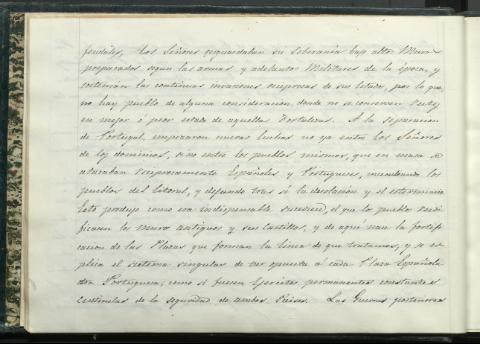 feudales, los Señores resguardaban su Soberania bajo altos Muros
preparados segun las armas y adelantos Militares de la época, y
sostenian las continuas invasiones reciprocas de sus Estados, por lo que
no hay pueblo de alguna consideracion donde no se conserven restos
en mejor ó peor estado de aquellas Fortalezas. A la separacion
de Portugal, empezaron nuevas luchas no ya entre los Señores
de los dominios, sino entre los pueblos mismos, que en masa se
atacaban reciprocamente Españoles y Portugueses, incendiando los
pueblos del litoral, y dejando tras si la desolacion y el esterminio
Esto produjo como era indispensable el que los pueblos reedi
ficasen los muros antiguos y sus Castillos, y de aqui nace la fortifi
cacion de las Plazas que forman la linea de que tratamos, y se es
plica el sistema singular de ver opuesta á cada Plaza Española
otra Portuguesa, como si fuesen Ejercitos permanentes constantes
centinelas de la seguridad de ambos Paises. Las Guerras posteriores